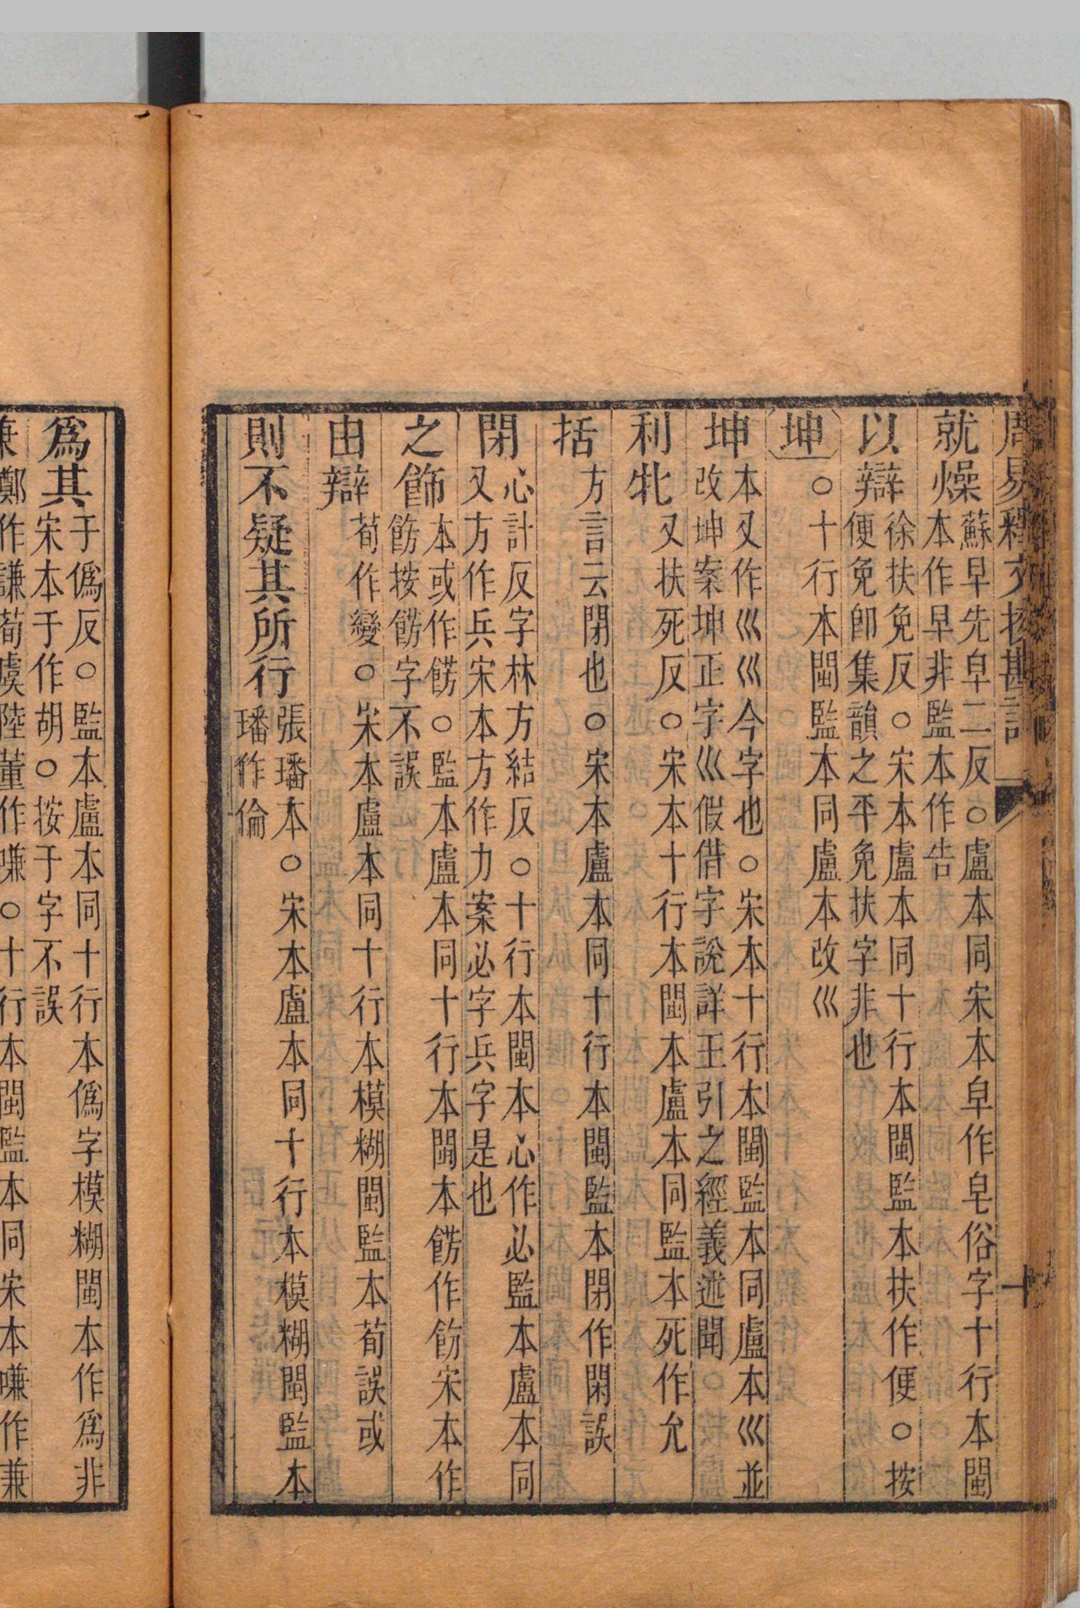 周易釋文挍勘記 十
就燥蘇早先皁二反○盧本同宋本皁作皂俗字十行本閩
本作早非監本作告
以辯徐扶免反○宋本盧本同十行本閩監本扶作便○按
便免卽集韻之平免扶字非也
坤○十行本閩監本同盧本改巛
坤本又作巛巛今字也○宋本十行本閩監本同盧本巛並
改坤案坤正字巛假借字說詳王引之經義述聞
利牝又扶死反○宋本十行本閩本盧本同監本死作允
括方言云閉也○宋本盧本同十行本閩監本閉作閑誤
閉心計反字林方結反○十行本閩本心作必監本盧本同
又方作兵宋本方作力案必字兵字是也
之飾本或作餝○監本盧本同十行本閩本餝作飭宋本作
飭按餝字不誤
由辯荀作變○宋本盧本同十行本模糊閩監本荀誤或
則不疑其所行張璠本○宋本盧本同十行本模糊閩監本
璠作倫
爲其于僞反○監本盧本同十行本僞字模糊閩本作爲非
宋本于作胡○按于字不誤
兼鄭作謙荀虞陸董作嗛○十行本閩監本同宋本嗛作兼